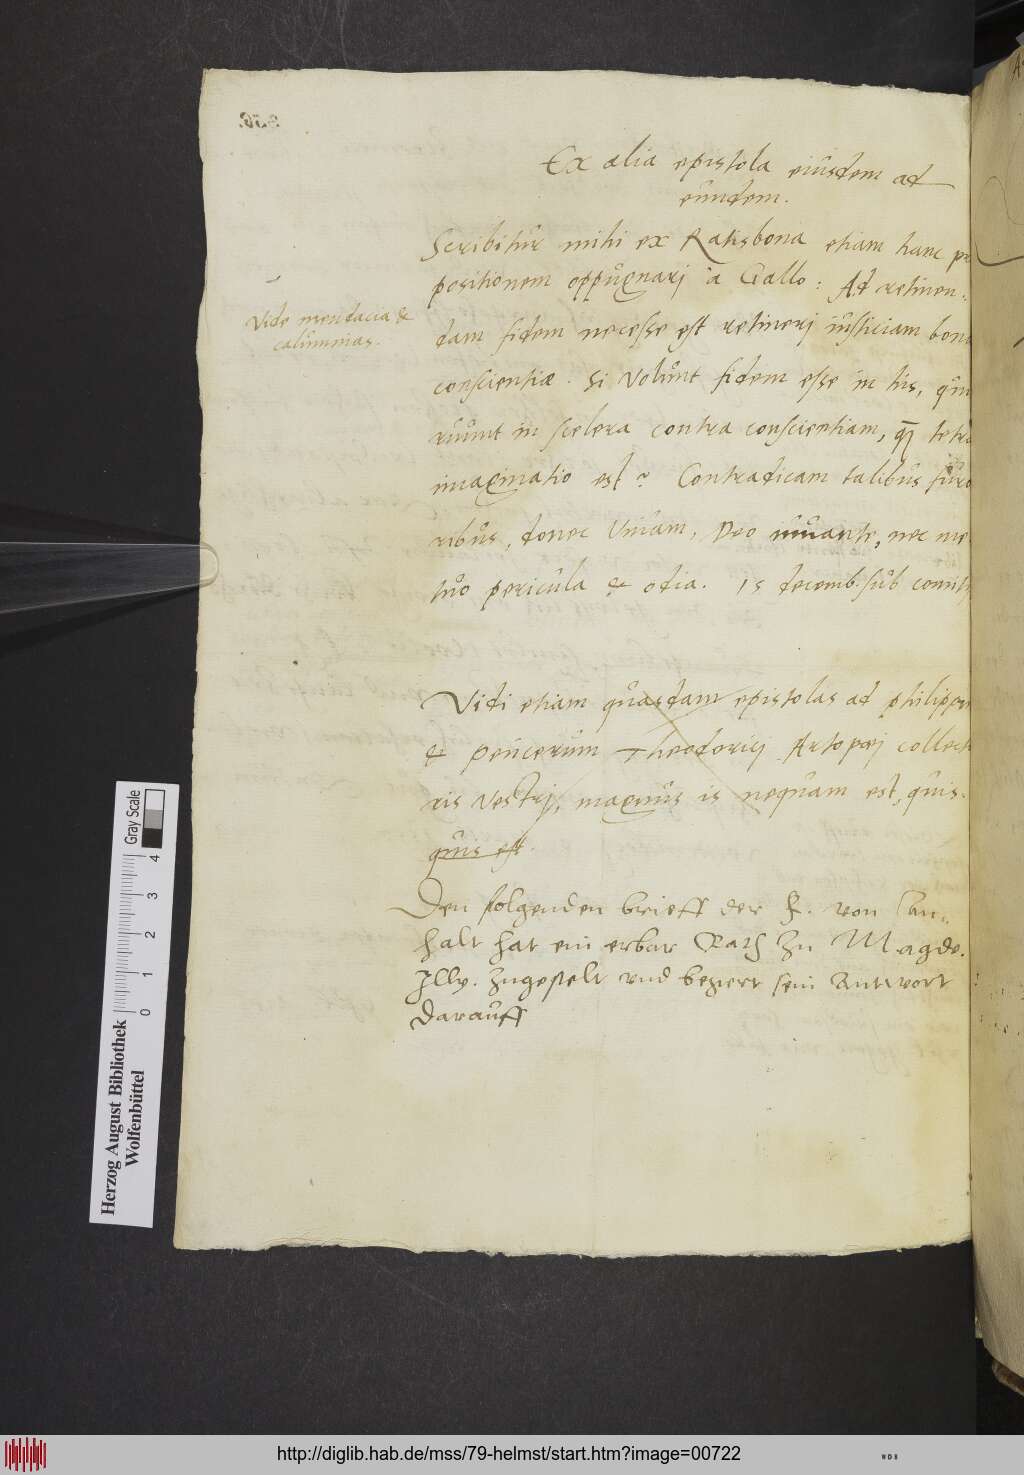 Ex alia epistola eiusdem ad
eundem.
Scribitur mihi ex Ratisbona etiam hanc pro
positionem oppugnarj à Gallo: Ad retinen:
Vide mendacia &
calumnias.
dam fidem necesse est retinerj iusticiam bonæ
conscientiæ. Si volunt fidem esse in his, qui
ruunt in scelera contra conscientiam,
imaginatio est? Contradicam talibus furo
ribus, donec vivam, Deo iuuante, nec me
tuo pericula & odia. 15 decemb. sub comitiis
Vidi etiam quasdam epistolas ad philippum
& peucerum Theodoricj Artopæj collecto
ris vestrj, magnus is nequam est, quis-
quis est.
Den folgenden brieff der F. von An-
halt hat ein erbar Rath zu Magde.
Illy. zugestelt vnd begert sein Antwort
darauff
Herzog August Bibliothek
Wolfenbüttel
0 1 2 3 4
Gray Scale
http://diglib.hab.de/mss/79-helmst/start.htm?image=00722
WDB